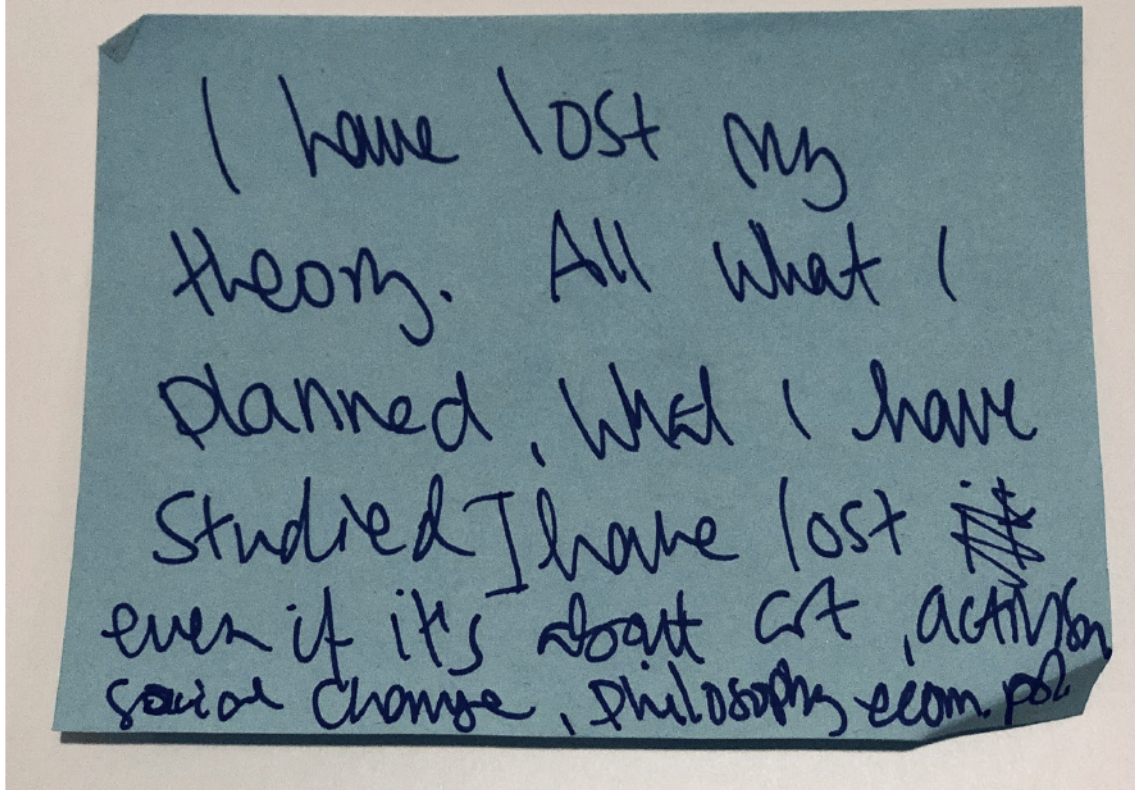 I have lost my
theory. All what I
planned, what I have
studied I have lost
even if it's about art, activism
social change, philosophy econ. pol